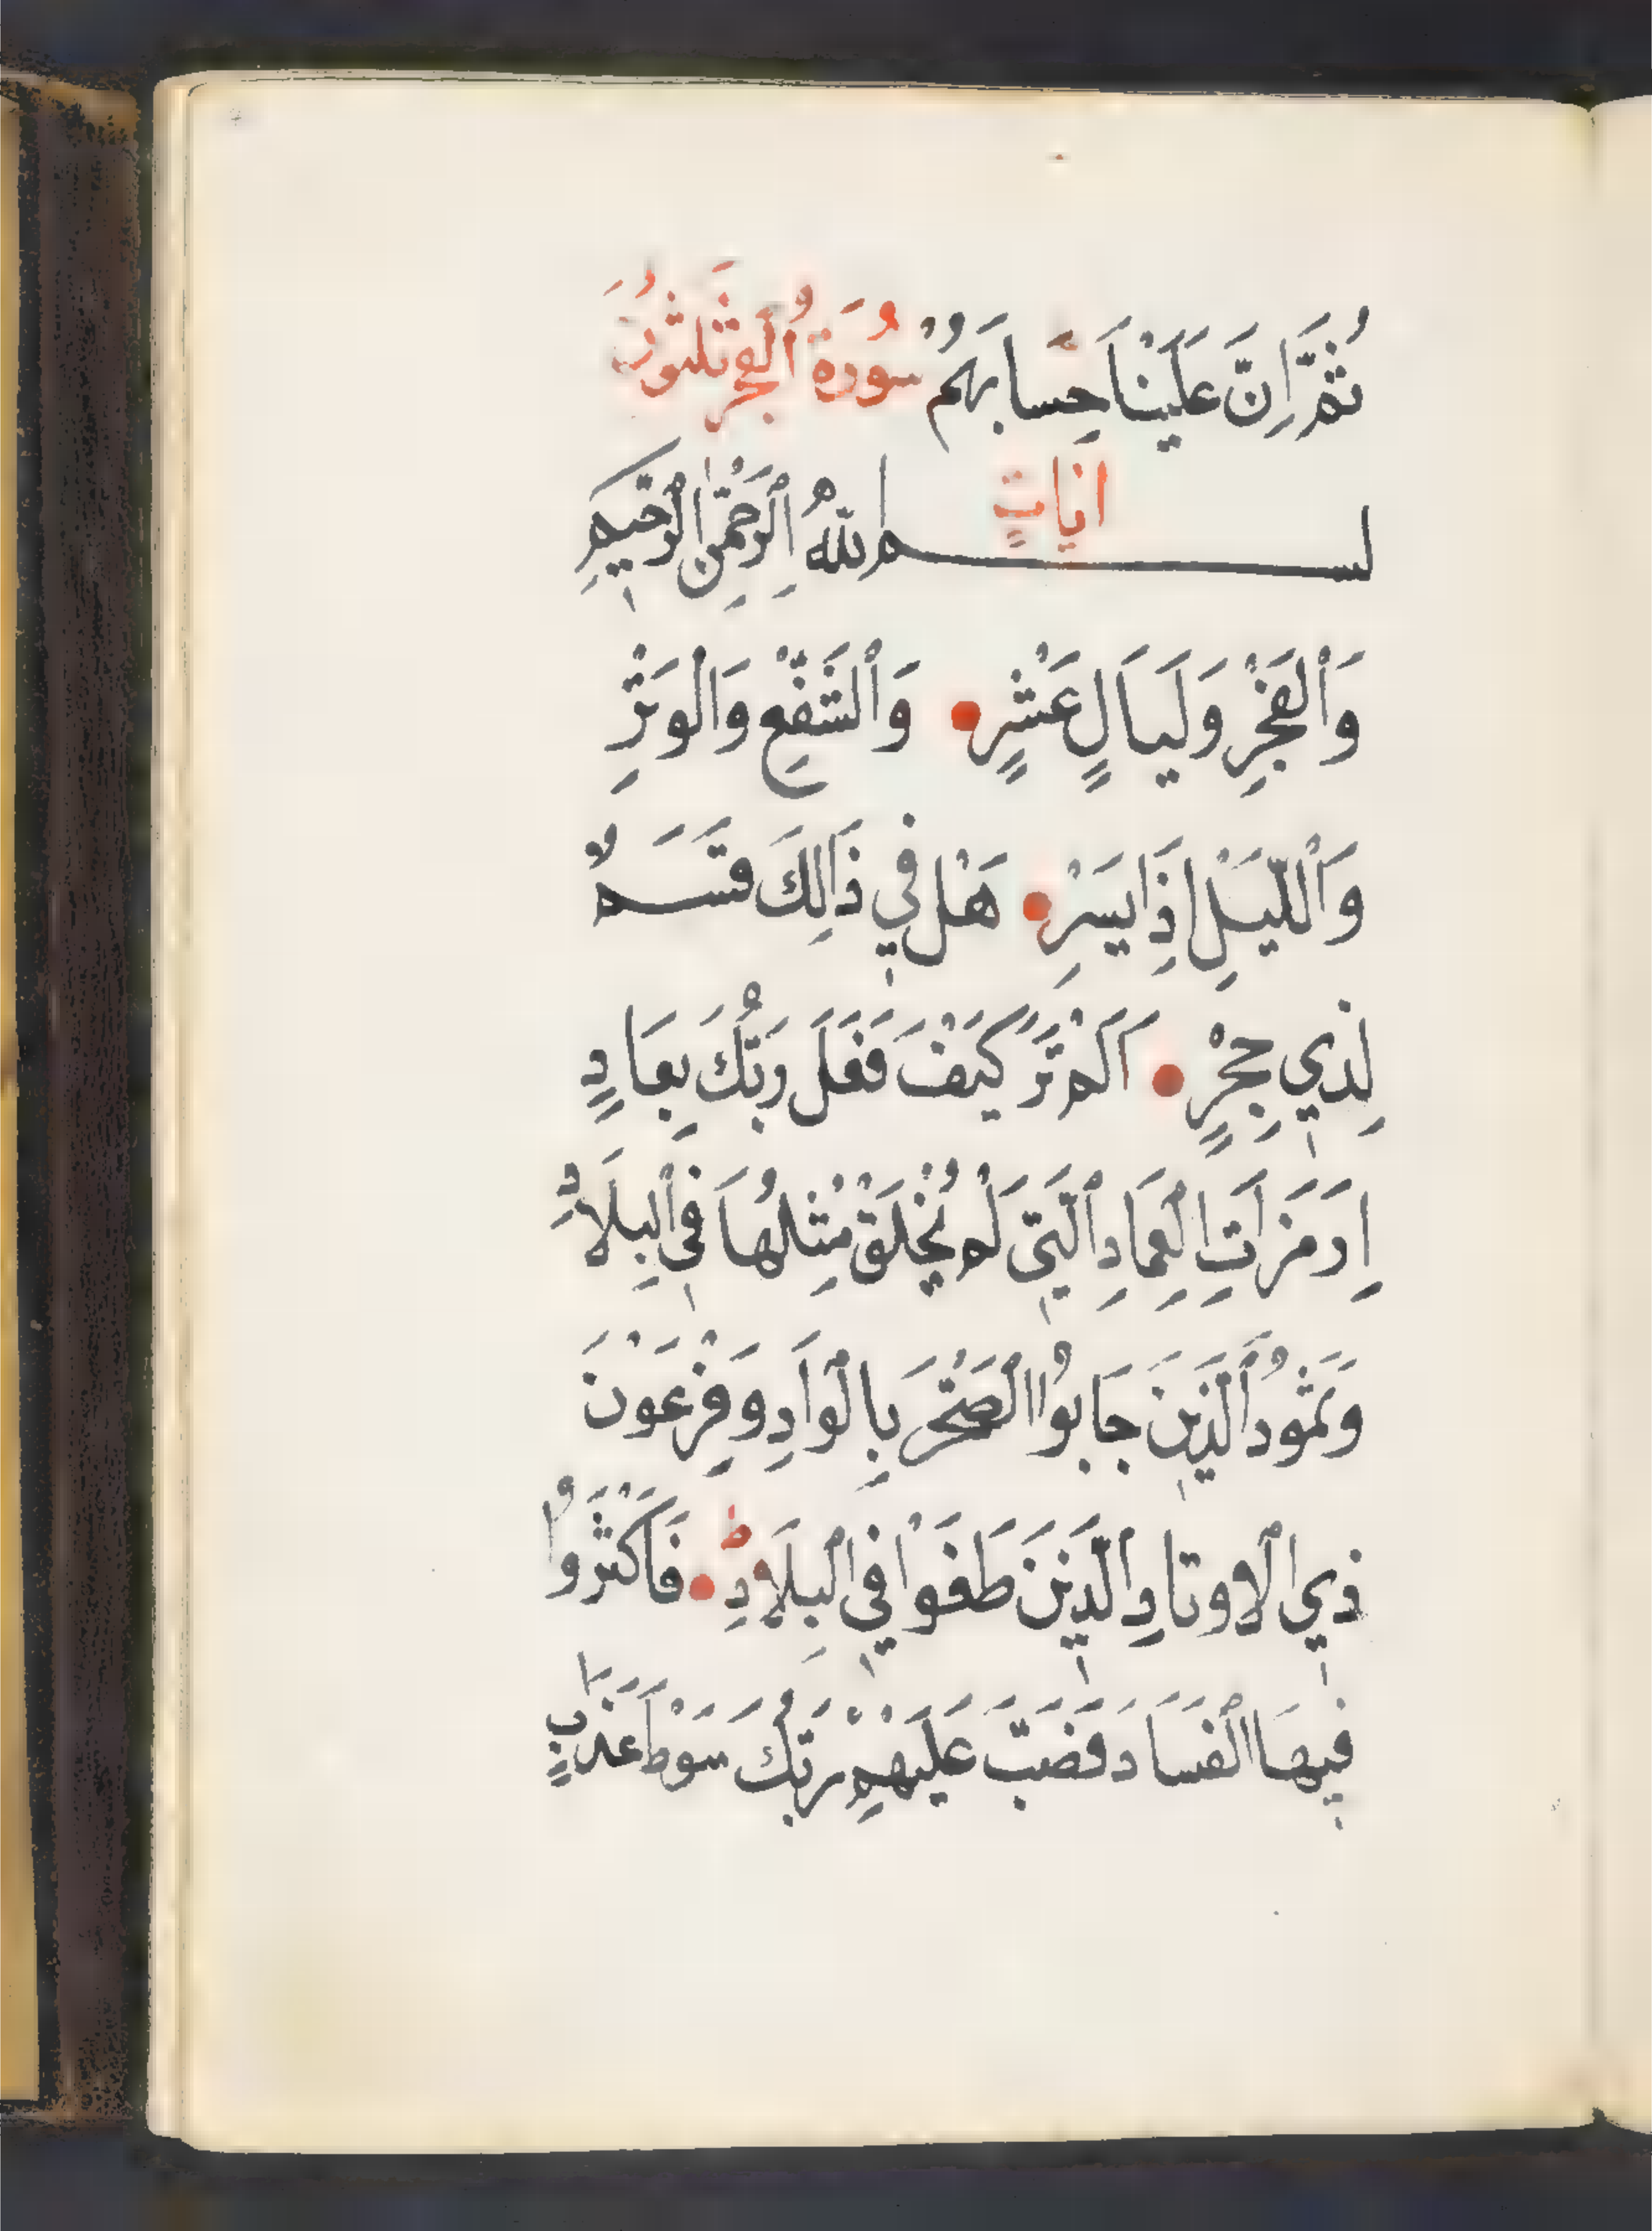 ثُمَّ اِنَّ عَلَيْنَا حِسَابَهُمْ سُورَةُ الْفَجْرِ ثَلٰثُونَ
اٰيَاتٍ
بسم اللهِ الرَّحْمٰنِ الرَّحِيمِ
وَالْفَجْرِ وَلَيَالٍ عَشْرٍ وَالشَّفْعِ وَالْوَتْرِ
وَالَّيْلِ اِذَا يَسْرِ هَلْ فِي ذَالِكَ قَسَمٌ
لِذِي حِجْرٍ اَلَمْ تَرَ كَيْفَ فَعَلَ رَبُّكَ بِعَادٍ
اِرَمَ ذَاتِ الْعِمَادِ الَّتِي لَمْ يُخْلَقْ مِثْلُهَا فِي الْبِلَادِ
وَثَمُودَ الَّذِينَ جَابُوا الصَّخْرَ بِالْوَادِ وَفِرْعَوْنَ
ذِي الْاَوْتَادِ الَّذِينَ طَغَوْا فِي الْبِلَادِ ط فَاَكْثَرُوا
فِيهَا الْفَسَادَ فَصَبَّ عَلَيْهِمْ رَبُّكَ سَوْطَ عَذَابٍ